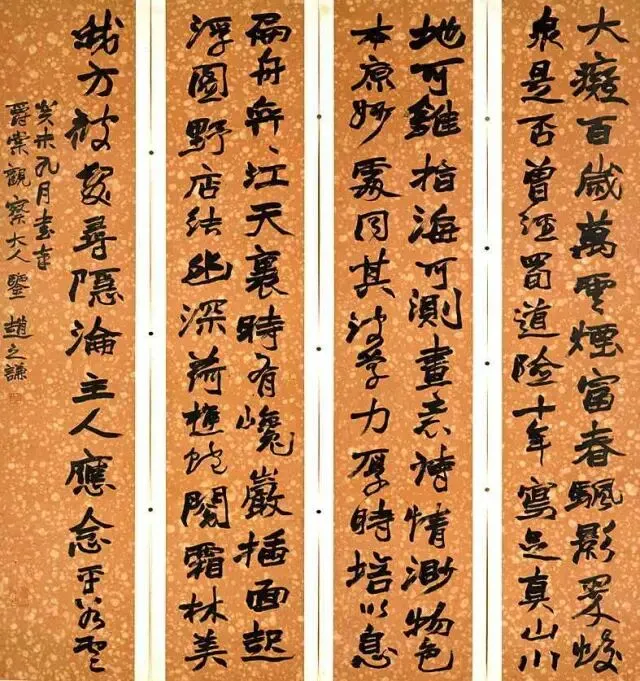 大癡百歲萬雲煙富春颿影眾
泉是否曾經蜀道險十年寫足真山川
地可雖指海可測畫意詩情渺物色
本原妙處同其學力厚時培以息
舟奔江天裏時有巉巖插面起
浮圖野店結幽深荷樵蛇霜林美
我方被髮尋隱淪主人應念平雲
癸未九月書奉
爵棠觀察大人鑒 趙之謙